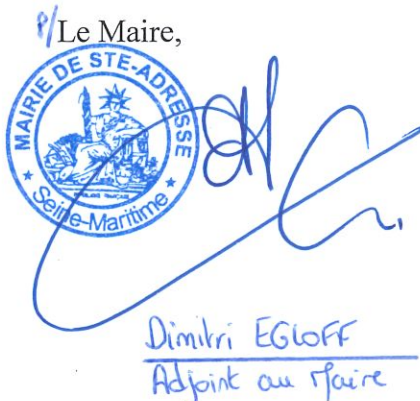 P/Le Maire,
MAIRIE DE STE-ADRESSE
Seine-Maritime
Dimitri EGLOFF
Adjoint au Maire